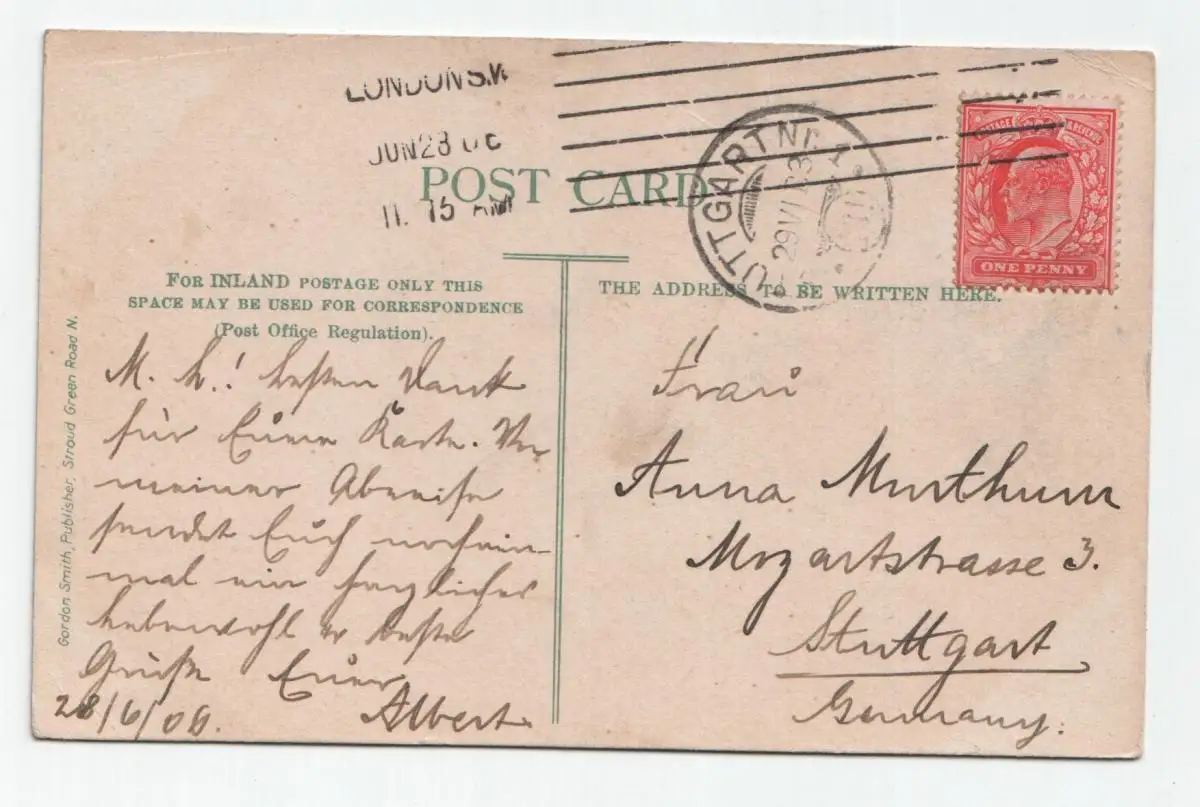 LONDON S.W
JUN 28 06
11. 15 AM
STUTTGART Nr. 1
29 VI
POST CARD
POSTAGE & REVENUE
ONE PENNY
FOR INLAND POSTAGE ONLY THIS
SPACE MAY BE USED FOR CORRESPONDENCE
(Post Office Regulation).
THE ADDRESS TO BE WRITTEN HERE.
Gordon Smith, Publisher, Stroud Green Road N.
M. L.! besten Dank
für Euere Karte. Vor
meiner Abreise
sendet Euch nochein-
mal ein herzliches
Lebewohl & beste
Grüße Euer
Albert.
28/6/06.
Frau
Anna Murthum
Mozartstrasse 3.
Stuttgart
Germany.